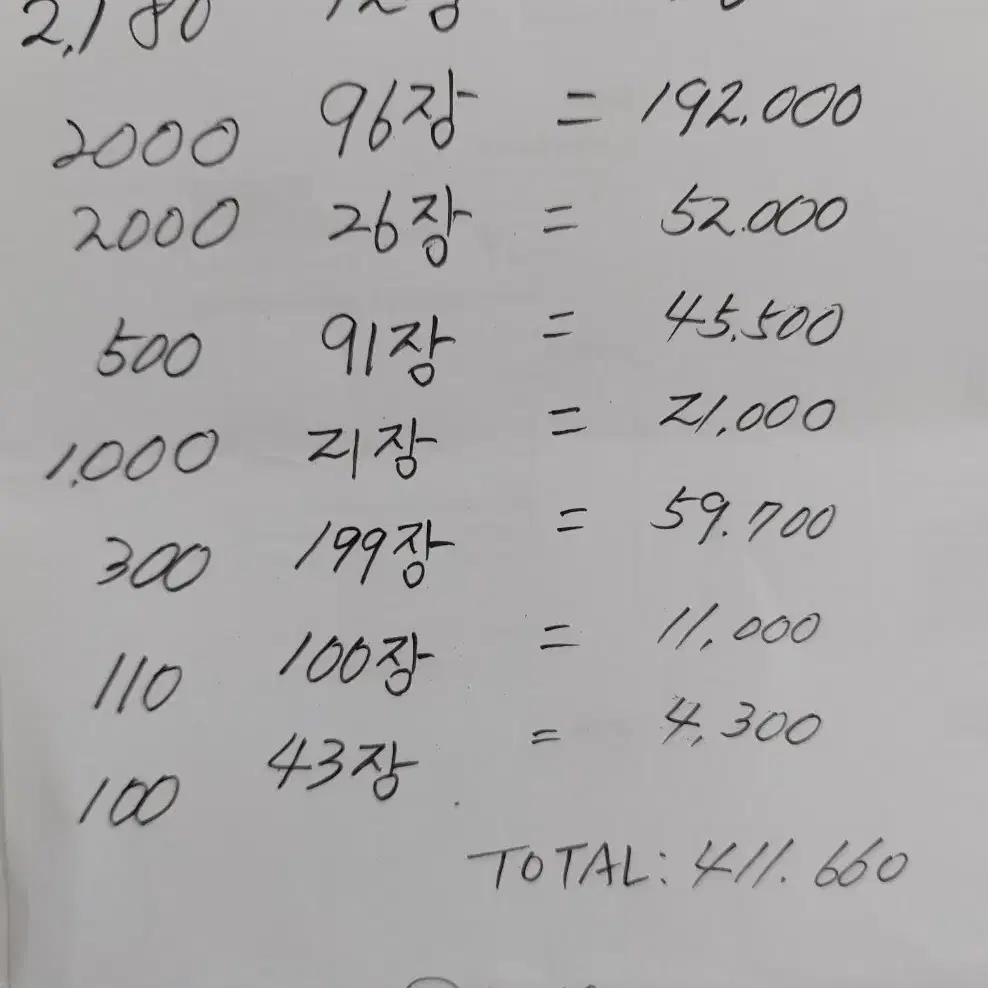 2,180 12장
2000 96장 = 192.000
2000 26장 = 52.000
500 91장 = 45.500
1,000 21장 = 21,000
300 199장 = 59.700
110 100장 = 11,000
100 43장 = 4,300
TOTAL: 411.660